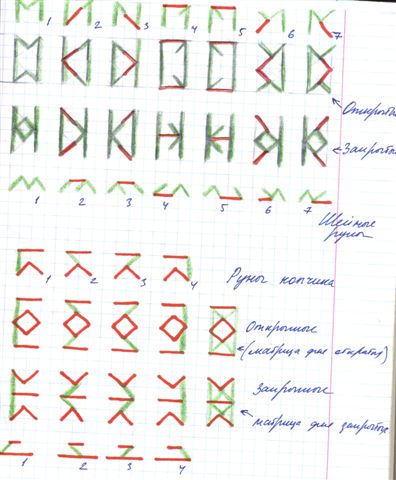 1 2 3 4 5 6 7
Открытые
Закрытые
1 2 3 4 5 6 7
Шейные
руны
1 2 3 4
Руны копчика
Открытые
(матрица для открытых)
Закрытые
матрица для закрытых
1 2 3 4